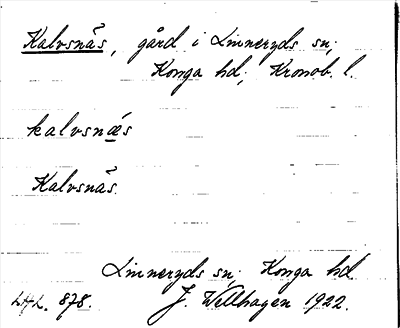 Kalvsnäs, gård i Linneryds sn;
Konga hd; Kronob. l.
kalvsnæs
Kalvsnäs.
Linneryds sn; Konga hd.
LAL. 878. J. Wellhagen 1922.